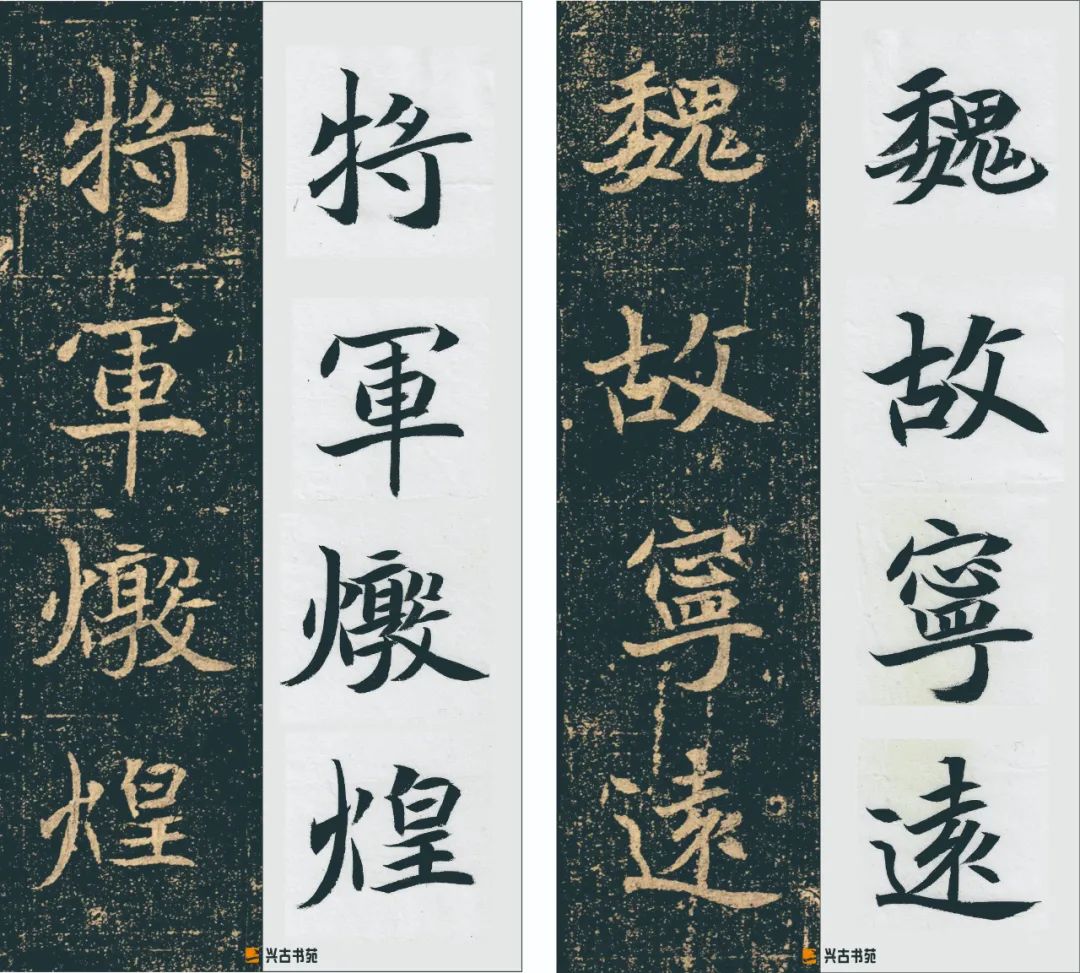 魏故寧遠
魏故寧遠
將軍燉煌
將軍燉煌
兴古书苑
兴古书苑